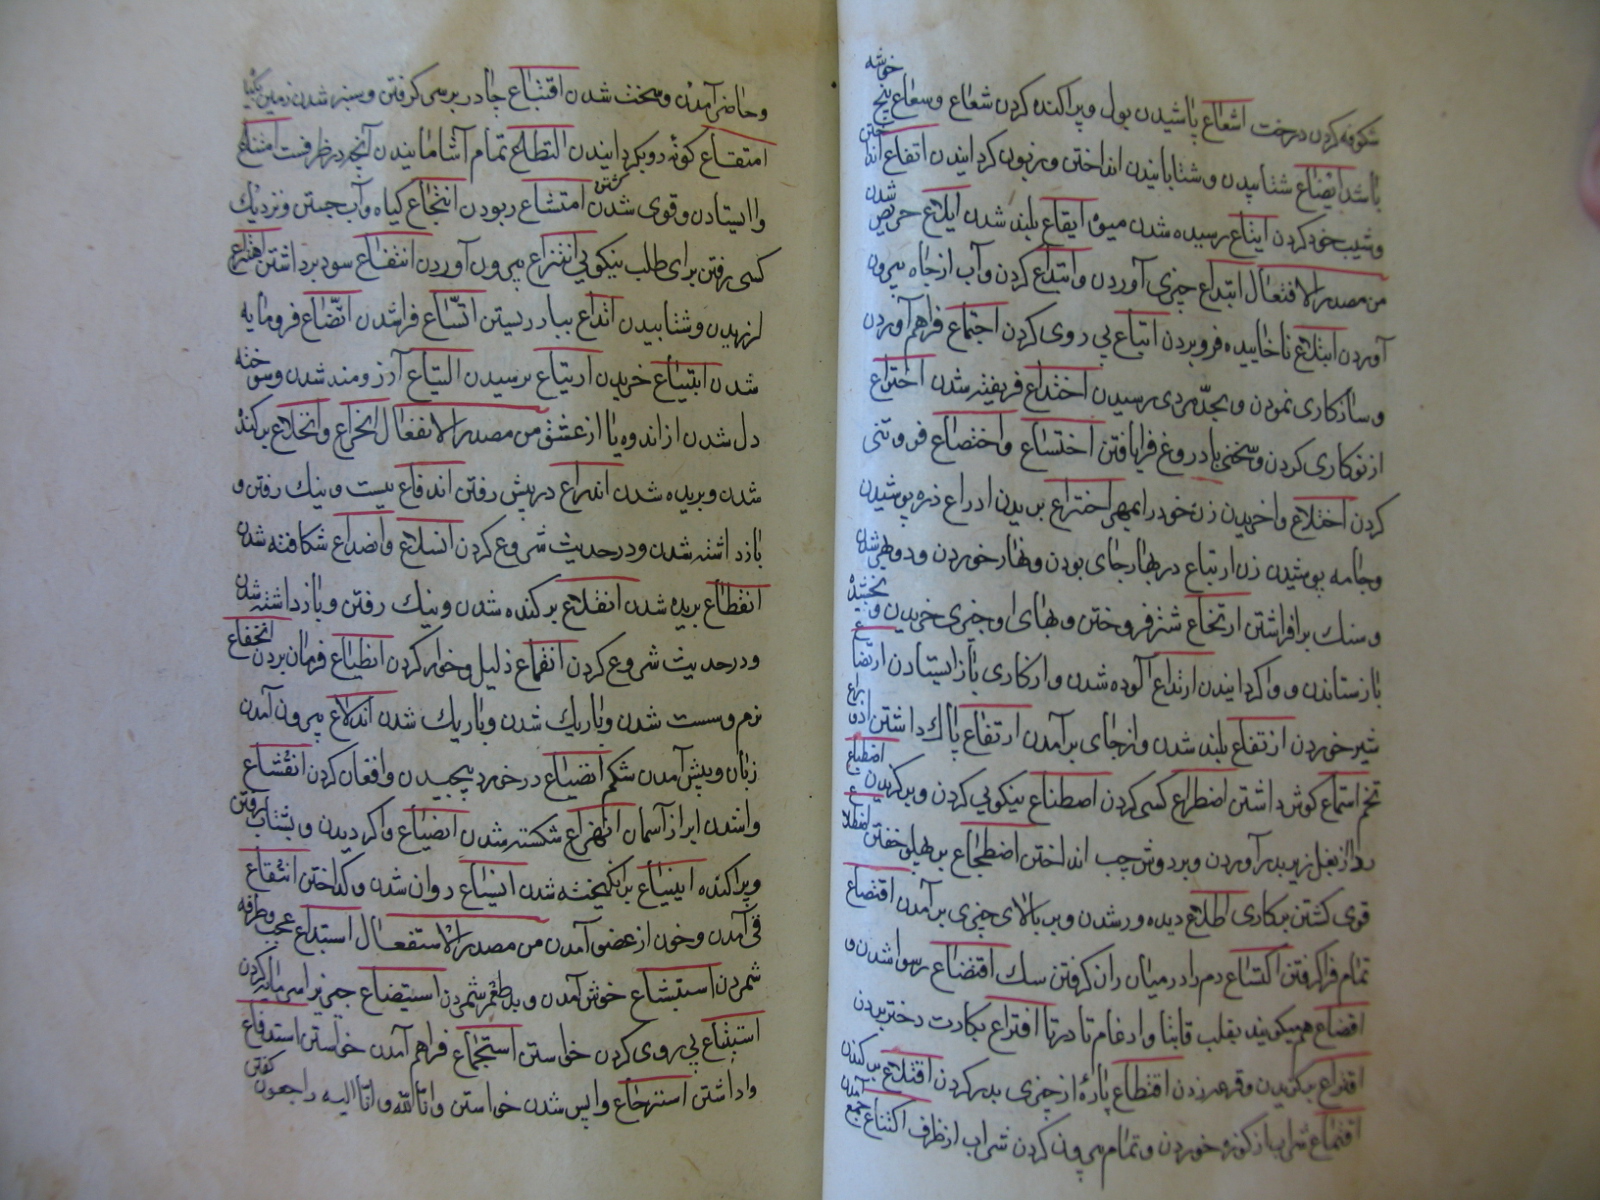 شکوفه کردن درخت اشعاع پاشیدن بول و پراکنده کردن شعاع و سعاع پنج خوشه
باشد ایضاع شتابیدن و شتابانیدن انداختن و زبون کردانیدن
و شیب خود کردن ایناع رسیده شدن میوه ایفاع بلند شدن ایلاع حریص شدن
من مصدر الافتعال ابتداع چیزی آوردن و ابتداع کردن و آب از چاه بیرون
آوردن ابتلاع ناخاییده فرو بردن اتباع پی روی کردن اجتماع فراهم آوردن
و سازکاری نمودن و بجد مردی رسیدن اختداع فریفته شدن اختراع
از نو کاری کردن و سخنی با دروغ فرا بافتن اختشاع و اختضاع فروتنی
کردن اختلاع واخریدن زن خود را بمهر اختراع بریدن ادراع ذره پوشیدن
و جامه پوشیدن زن ارتباع در بهار جای بودن و بهار خوردن و
و سنک برافراشتن ارتجاع شتر فروختن و بهای او چیزی خریدن و بخشیده
بازستاندن و واکردانیدن ارتداع آلوده شدن و از کاری باز ایستادن ارتضاع
شیر خوردن ارتفاع بلند شدن و از جای برآمدن ارتفاع پاک داشتن
تخم استماع کوش داشتن اضطراع کسی کردن اصطناع نیکویی کردن و برکزیدن اضطباع
ردا از بغل زیر بدر آوردن و بر دوش چپ انداختن اضطجاع بر پهلو خفتن اضطلاع
قوی کشتن بر کاری اطلاع دیده ور شدن و بر بالای چیزی برآمدن
تمام فرا کرفتن اکتساع دم را در میان ران کرفتن سک اقتضاع رسوا شدن و
اقضاع هم میکویند بقلب و ادغام تا در تا افتراع بکارت دختر بردن
اقتراع بکزیدن و قرعه زدن اقتطاع پارهٔ از چیزی بدر کردن اقتلاع بر کندن
اقتماع شراب از کوزه خوردن و تمام بیرون کردن شراب از ظرف اکتناع جمع آمدن
و حاضر آمدن و سخت شدن اقتباع چادر بر سر کرفتن و سبز شدن زمین
امتقاع کونه دو یکر دانیدن التطاع تمام آشامانیدن آنچه در ظرفست امتناع
وا ایستادن و قوی شدن امتشاع ربودن انتجاع کیاه و آب جستن و نزدیک
کسی رفتن برای طلب نیکویی انتزاع بیرون آوردن انتفاع سود برداشتن اهتراع
لرزیدن و شتابیدن اتداع بیاد رسیتن اتساع فراشدن اتضاع فرومایه
شدن ابتیاع خریدن ارتیاع ترسیدن التیاع آرزومند شدن و سوخته
دل شدن از اندوه یا از عشق من مصدر الانفعال انخراع و انخلاع برکنده
شدن و بریده شدن اندراع در پیش رفتن اندفاع نیست و نیک رفتن و
باز داشته شدن و در حدیث شروع کردن انسلاع و انصداع شکافته شدن
انقطاع بریده شدن انقلاع برکنده شدن و نیک رفتن و باز داشته شدن
و در حدیث شروع کردن انقماع ذلیل و خوار کردن انطباع فرمان بردن
نرم و سست شدن و باریک شدن و باریک شدن اندلاع بیرون آمدن
زبان و پیش آمدن شکم انضیاع در خود پیچیدن و افغان کردن انقشاع
واشدن ابر از آسمان انهزاع شکسته شدن انصیاع واکردیدن و بشتاب رفتن
و پراکنده برانکیخته شدن انمیاع روان شدن و کداختن
قی آمدن و خون از عضو آمدن من مصدر الاستفعال استبداع عجب و طرفه
شمردن استبشاع خوش آمدن و بد طعم شمردن استبضاع چیزی را سرمایه کردن
استتباع پی روی کردن خواستن استجماع فراهم آمدن خواستن استدفاع
وا داشتن استرجاع واپس شدن خواستن و انا لله و انا الیه راجعون کفتن